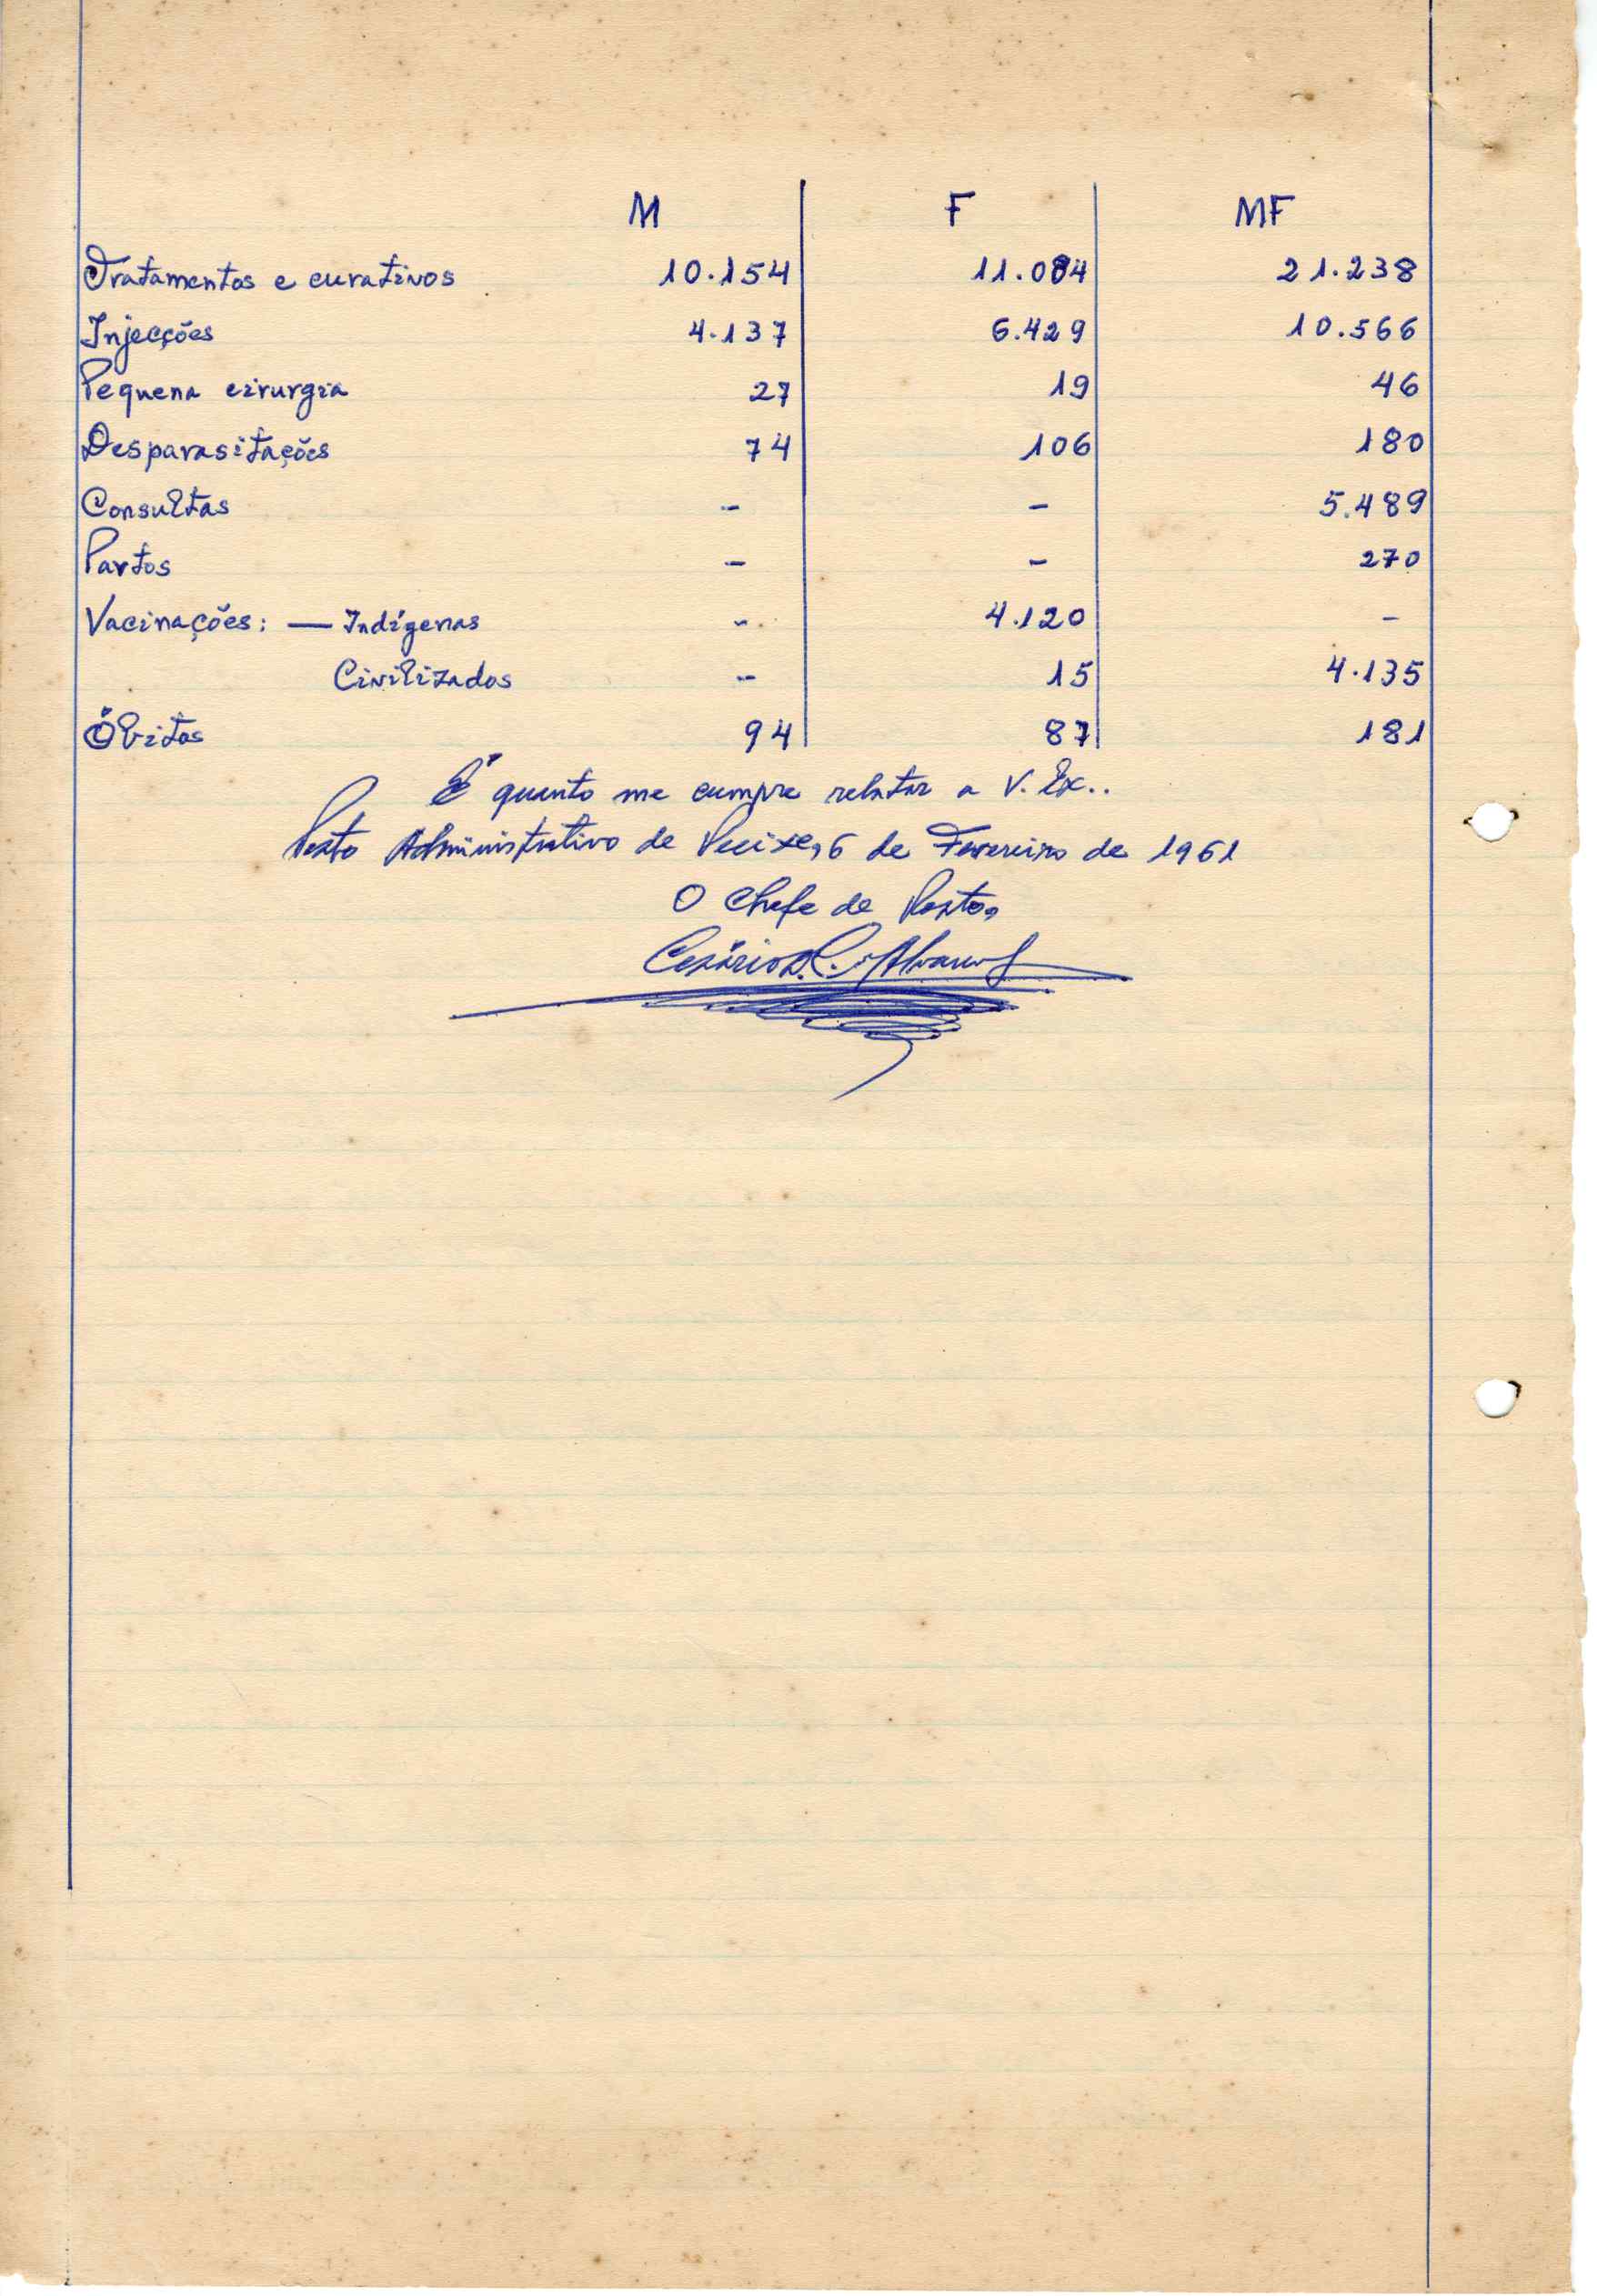 M F MF
Tratamentos e curativos 10.154 11.084 21.238
Injecções 4.137 6.429 10.566
Pequena cirurgia 27 19 46
Desparasitações 74 106 180
Consultas - - 5.489
Partos - - 270
Vacinações: — Indígenas - 4.120 -
Civilizados - 15 4.135
Óbitos 94 87 181
É quanto me cumpre relatar a V. Ex..
Posto Administrativo de Pecixe, 6 de Fevereiro de 1961
O Chefe de Posto,
Cesário Alvarez